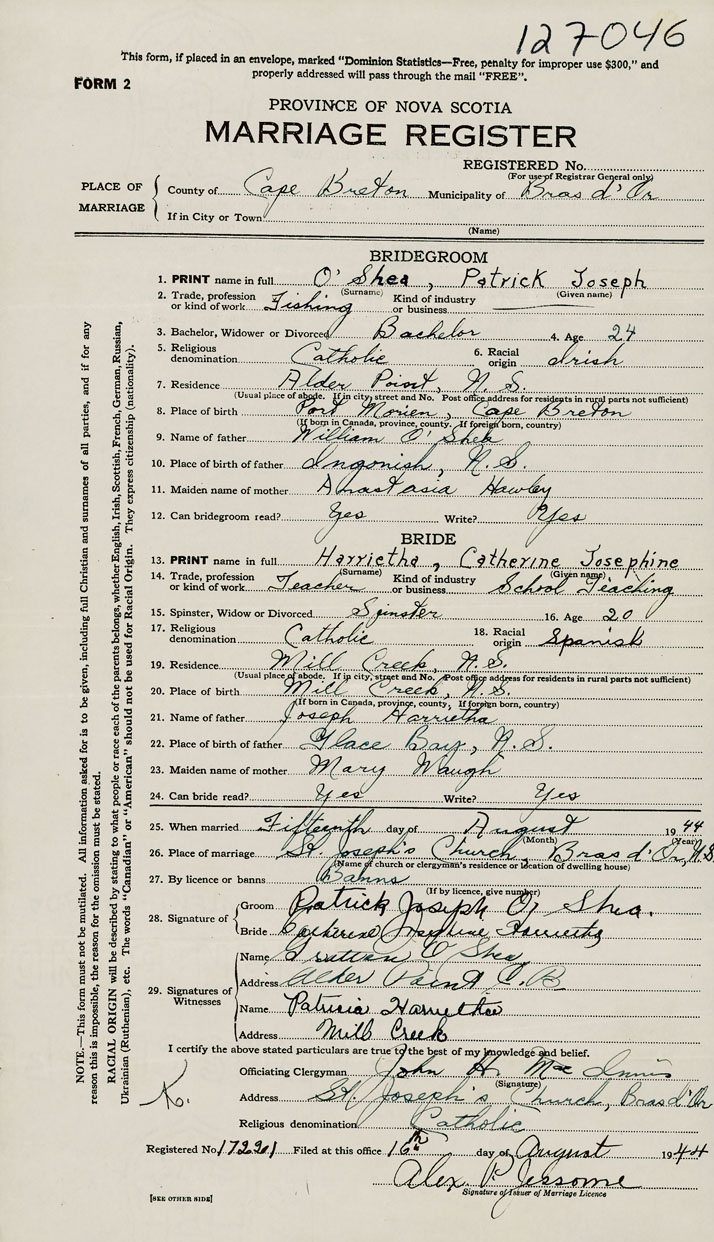 127046
This form, if placed in an envelope, marked "Dominion Statistics—Free, penalty for improper use $300," and
properly addressed will pass through the mail "FREE".
FORM 2
PROVINCE OF NOVA SCOTIA
MARRIAGE REGISTER
REGISTERED No.
(For use of Registrar General only)
PLACE OF MARRIAGE
County of Cape Breton Municipality of Bras d'Or
If in City or Town
(Name)
BRIDEGROOM
1. PRINT name in full O'Shea, Patrick Joseph
(Surname) (Given name)
2. Trade, profession or kind of work Fishing Kind of industry or business
3. Bachelor, Widower or Divorced Bachelor 4. Age 24
5. Religious denomination Catholic 6. Racial origin Irish
7. Residence Alder Point, N.S.
(Usual place of abode. If in city, street and No. Post office address for residents in rural parts not sufficient)
8. Place of birth Port Morien, Cape Breton
(If born in Canada, province, county. If foreign born, country)
9. Name of father William O'Shea
10. Place of birth of father Ingonish, N.S.
11. Maiden name of mother Anastasia Hawley
12. Can bridegroom read? Yes Write? Yes
BRIDE
13. PRINT name in full Harrietha, Catherine Josephine
(Surname) (Given name)
14. Trade, profession or kind of work Teacher Kind of industry or business School Teaching
15. Spinster, Widow or Divorced Spinster 16. Age 20
17. Religious denomination Catholic 18. Racial origin Spanish
19. Residence Mill Creek, N.S.
(Usual place of abode. If in city, street and No. Post office address for residents in rural parts not sufficient)
20. Place of birth Mill Creek, N.S.
(If born in Canada, province, county. If foreign born, country)
21. Name of father Joseph Harrietha
22. Place of birth of father Glace Bay, N.S.
23. Maiden name of mother Mary Waugh
24. Can bride read? Yes Write? Yes
25. When married Fifteenth day of August 1944
(Month) (Year)
26. Place of marriage St. Joseph's Church, Bras d'Or, N.S.
(Name of church or clergyman's residence or location of dwelling house)
27. By licence or banns Banns
(If by licence, give number)
28. Signature of
Groom Patrick Joseph O'Shea.
Bride Catherine Josephine Harrietha
29. Signatures of Witnesses
Name O'Shea
Address Alder Point C.B
Name Patrisia Harrietha
Address Mill Creek
I certify the above stated particulars are true to the best of my knowledge and belief.
Officiating Clergyman John H. Mac Innis
(Signature)
Address St. Joseph's Church, Bras d'Or
Religious denomination Catholic
Registered No. 17221 Filed at this office 16th day of August 1944
Alex. P. Jessome
Signature of Issuer of Marriage Licence
[SEE OTHER SIDE]
NOTE.—This form must not be mutilated. All information asked for is to be given, including full Christian and surnames of all parties, and if for any
reason this is impossible, the reason for the omission must be stated.
RACIAL ORIGIN will be described by stating to what people or race each of the parents belongs, whether English, Irish, Scottish, French, German, Russian,
Ukrainian (Ruthenian), etc. The words "Canadian" or "American" should not be used for Racial Origin. They express citizenship (nationality).